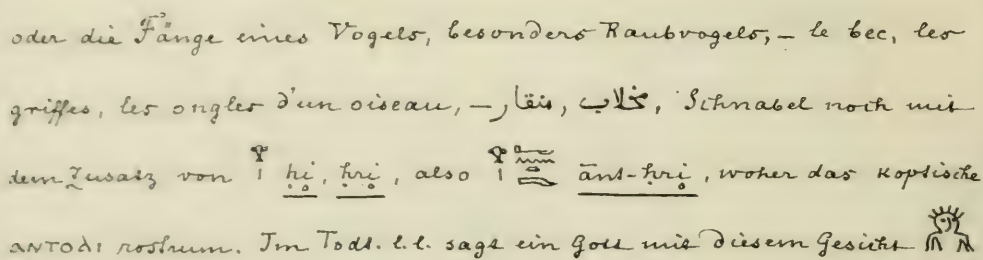 oder die Fänge eines Vogels, besonders Raubvogels, – le bec, les
griffes, les ongles d'un oiseau, – منقار, مخلاب, Schnabel noch mit
dem Zusatz von 𓁷𓏤 ḥi, ḥri, also ānt-ḥri, woher das Koptische
rostrum. Im Todt. l.l. sagt ein Gott mit diesem Gesicht